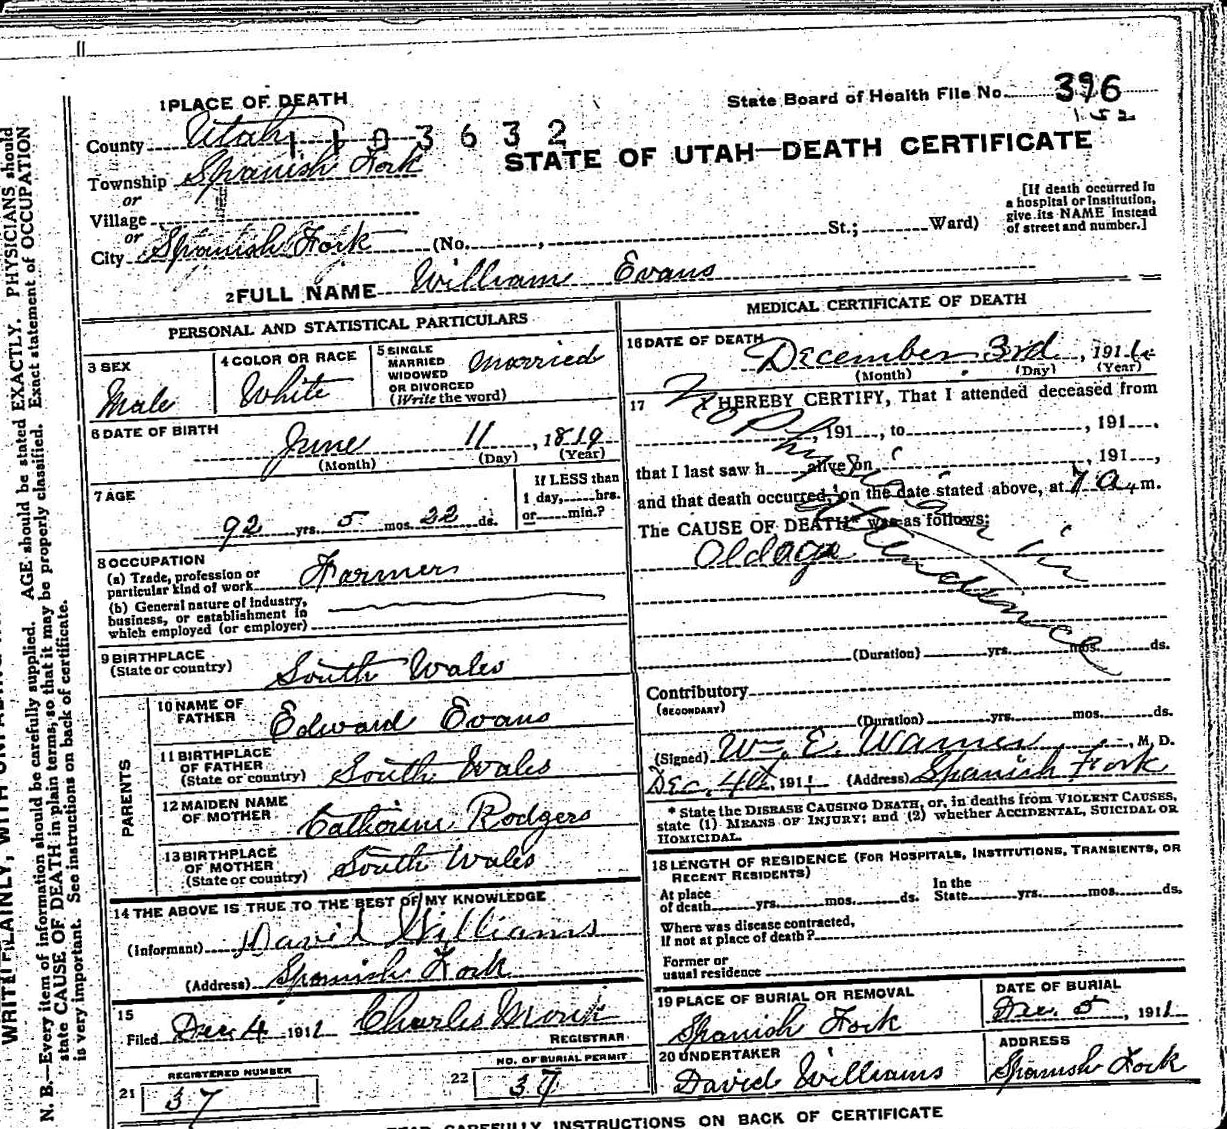 1 PLACE OF DEATH
State Board of Health File No. 396
152
County Utah
1 1 0 3 6 3 2
STATE OF UTAH—DEATH CERTIFICATE
Township Spanish Fork
or
Village
or
City Spanish Fork (No. , St.; Ward)
[If death occurred in
a hospital or institution,
give its NAME instead
of street and number.]
2 FULL NAME William Evans
PERSONAL AND STATISTICAL PARTICULARS
3 SEX
Male
4 COLOR OR RACE
White
5 SINGLE
MARRIED
WIDOWED
OR DIVORCED
(Write the word)
Married
6 DATE OF BIRTH
June 11, 1819
(Month) (Day) (Year)
7 AGE
92 yrs. 5 mos. 22 ds.
If LESS than
1 day, hrs.
or min.?
8 OCCUPATION
(a) Trade, profession or
particular kind of work Farmer
(b) General nature of industry,
business, or establishment in
which employed (or employer)
9 BIRTHPLACE
(State or country) South Wales
PARENTS
10 NAME OF
FATHER Edward Evans
11 BIRTHPLACE
OF FATHER
(State or country) South Wales
12 MAIDEN NAME
OF MOTHER Catherine Rodgers
13 BIRTHPLACE
OF MOTHER
(State or country) South Wales
14 THE ABOVE IS TRUE TO THE BEST OF MY KNOWLEDGE
(Informant) David Williams
(Address) Spanish Fork
15
Filed Dec 4 1911 Charles Monk
REGISTRAR
REGISTERED NUMBER
21 37
NO. OF BURIAL PERMIT
22 37
MEDICAL CERTIFICATE OF DEATH
16 DATE OF DEATH
December 3rd, 1911
(Month) (Day) (Year)
17 I HEREBY CERTIFY, That I attended deceased from
, 191 , to , 191 .
that I last saw h alive on , 191 ,
and that death occurred, on the date stated above, at 7 a. m.
The CAUSE OF DEATH* was as follows:
Old age
No Physician in
attendance
(Duration) yrs. mos. ds.
Contributory
(SECONDARY)
(Duration) yrs. mos. ds.
(Signed) W. E. Warner, M. D.
Dec. 4th, 1911 (Address) Spanish Fork
* State the DISEASE CAUSING DEATH, or, in deaths from VIOLENT CAUSES,
state (1) MEANS OF INJURY; and (2) whether ACCIDENTAL, SUICIDAL OR
HOMICIDAL.
18 LENGTH OF RESIDENCE (FOR HOSPITALS, INSTITUTIONS, TRANSIENTS, OR
RECENT RESIDENTS)
At place
of death yrs. mos. ds.
In the
State yrs. mos. ds.
Where was disease contracted,
if not at place of death?
Former or
usual residence
19 PLACE OF BURIAL OR REMOVAL
Spanish Fork
DATE OF BURIAL
Dec. 5, 1911
20 UNDERTAKER
David Williams
ADDRESS
Spanish Fork
CAREFULLY INSTRUCTIONS ON BACK OF CERTIFICATE
WRITE PLAINLY, WITH
N. B.—Every item of information should be carefully supplied. AGE should be stated EXACTLY. PHYSICIANS should
state CAUSE OF DEATH in plain terms, so that it may be properly classified. Exact statement of OCCUPATION
is very important. See instructions on back of certificate.